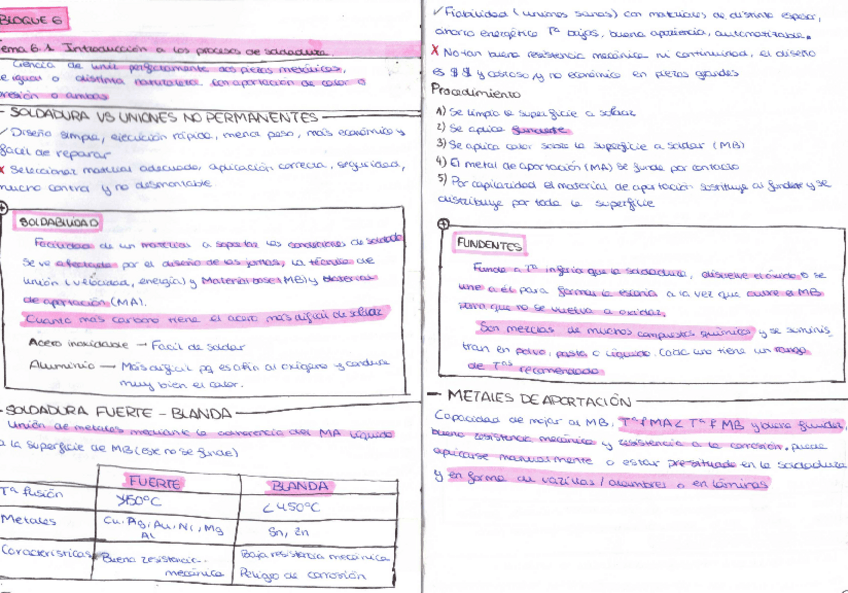 BLOQUE 6
Tema 6.1. Introducción a los procesos de soldadura
Ciencia de unir perfectamente dos piezas metálicas,
de igual o distinta naturaleza, con aportación de calor o
presión o ambas
- SOLDADURA VS UNIONES NO PERMANENTES
✓ Diseño simple, ejecución rápida, menor peso, más económico y
fácil de reparar
X Seleccionar material adecuado, aplicación correcta, seguridad,
mucho control y no desmontable
SOLDABILIDAD
Facilidad de un material a soportar las condiciones de soldado
Se ve afectada por el diseño de las juntas, la técnica de
unión (velocidad, energía) y Material base (MB) y
de aportación (MA).
Cuanto más carbono tiene el acero más difícil de soldar
Acero inoxidable → Fácil de soldar
Aluminio → Más difícil pq es afín al oxígeno y conduce
muy bien el calor.
- SOLDADURA FUERTE - BLANDA
Unión de metales mediante la coherencia del MA líquido
a la superficie de MB (este no se funde)
FUERTE BLANDA
Tª fusión >450°C <450°C
Metales Cu, Ag, Au, Ni, Mg Sn, Zn
Al
Características Buena resistencia Baja resistencia mecánica
mecánica Peligro de corrosión
✓ Fiabilidad (uniones sanas) con materiales de distinto espesor,
ahorro energético Tª bajas, buena apariencia, automatizable.
X No tan buena resistencia mecánica ni continuidad, el diseño
es $$ y costoso y no económico en piezas grandes
Procedimiento
1) Se limpia la superficie a soldar
2) Se aplica fundente
3) Se aplica calor sobre la superficie a soldar (MB)
4) El metal de aportación (MA) se funde por contacto
5) Por capilaridad el material de aportación sustituye al fundente y se
distribuye por toda la superficie
FUNDENTES
Funde a Tª inferior que la soldadura, disuelve el óxido o se
une a él para formar la escoria a la vez que cubre el MB
para que no se vuelva a oxidar.
Son mezclas de muchos compuestos químicos y se suminis-
tran en polvo, pasta o líquido. Cada uno tiene un rango
de Tªs recomendado
- METALES DE APORTACIÓN
Capacidad de mojar al MB, Tª f MA < Tª f MB y buena fluidez,
buena resistencia mecánica y resistencia a la corrosión. puede
aplicarse manualmente o estar presituado en la soldadura
y en forma de varillas / alambres o en láminas